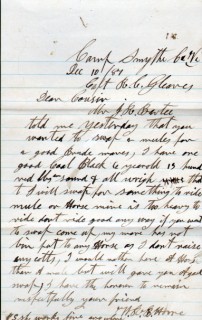 Camp Smythe Co Va
Dec 10/87
Capt R. C. Gleaves
Dear Cousin
Mr J. H. Castee
told me yesterday that you
wanted to swap a mules for
a good brude mares, I have one
good Coal Black 6 year old 13 hund
red lbs sound & all worth that
I will swap for something to ride
mule or Horse mine is too heavy to
ride dont ride good any way if you want
to swap come up my mare has not
bin put to any Horse as I dont raise
any colts, I would rather have a Horse
than a mule but will gave you a good
swap, I have the honor to remain
respectfully your friend
Horne
P.S. she works fine any where